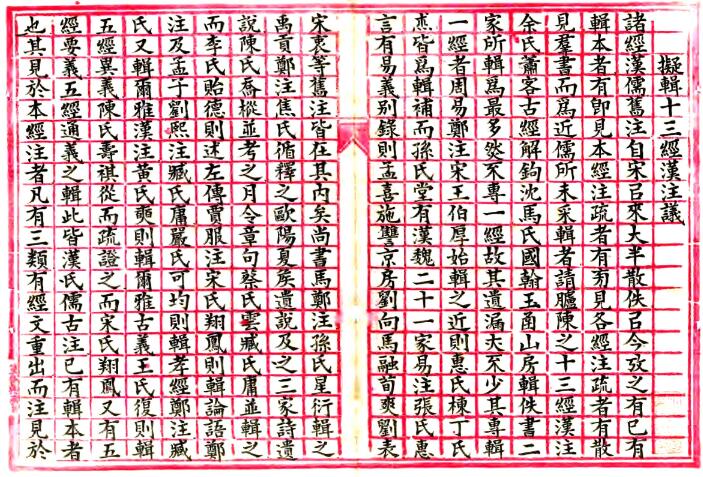 擬輯十三經漢注議
諸經漢儒舊注自宋㠯來大半散佚㠯今攷之有已有
輯本者有卽見本經注疏者有㫄見各經注疏者有散
見羣書而爲近儒所未采輯者請臚陳之十三經漢注
余氏蕭客古經解鉤沈馬氏國翰玉函山房輯佚書二
家所輯爲最多然不專一經故其遺漏亦不少其專輯
一經者周易鄭注宋王伯厚始輯之近則惠氏棟丁氏
杰皆爲輯補而孫氏堂有漢魏二十一家易注張氏惠
言有易義别錄則孟喜施讐京房劉向馬融荀爽劉表
宋衷等舊注皆在其内矣尚書馬鄭注孫氏星衍輯之
禹貢鄭注焦氏循釋之歐陽夏矦遺說及之三家詩遺
說陳氏喬樅並考之月令章句蔡氏雲臧氏庸並輯之
而李氏貽德則述左傳賈服注宋氏翔鳳則輯論語鄭
注及孟子劉熙注臧氏庸嚴氏可均則輯孝經鄭注臧
氏又輯爾雅漢注黄氏奭則輯爾雅古義王氏復則輯
五經異義陳氏壽祺從而疏證之而宋氏翔鳳又有五
經要義五經通義之輯此皆漢氏儒古注已有輯本者
也其見於本經注者凡有三類有經文重出而注見於